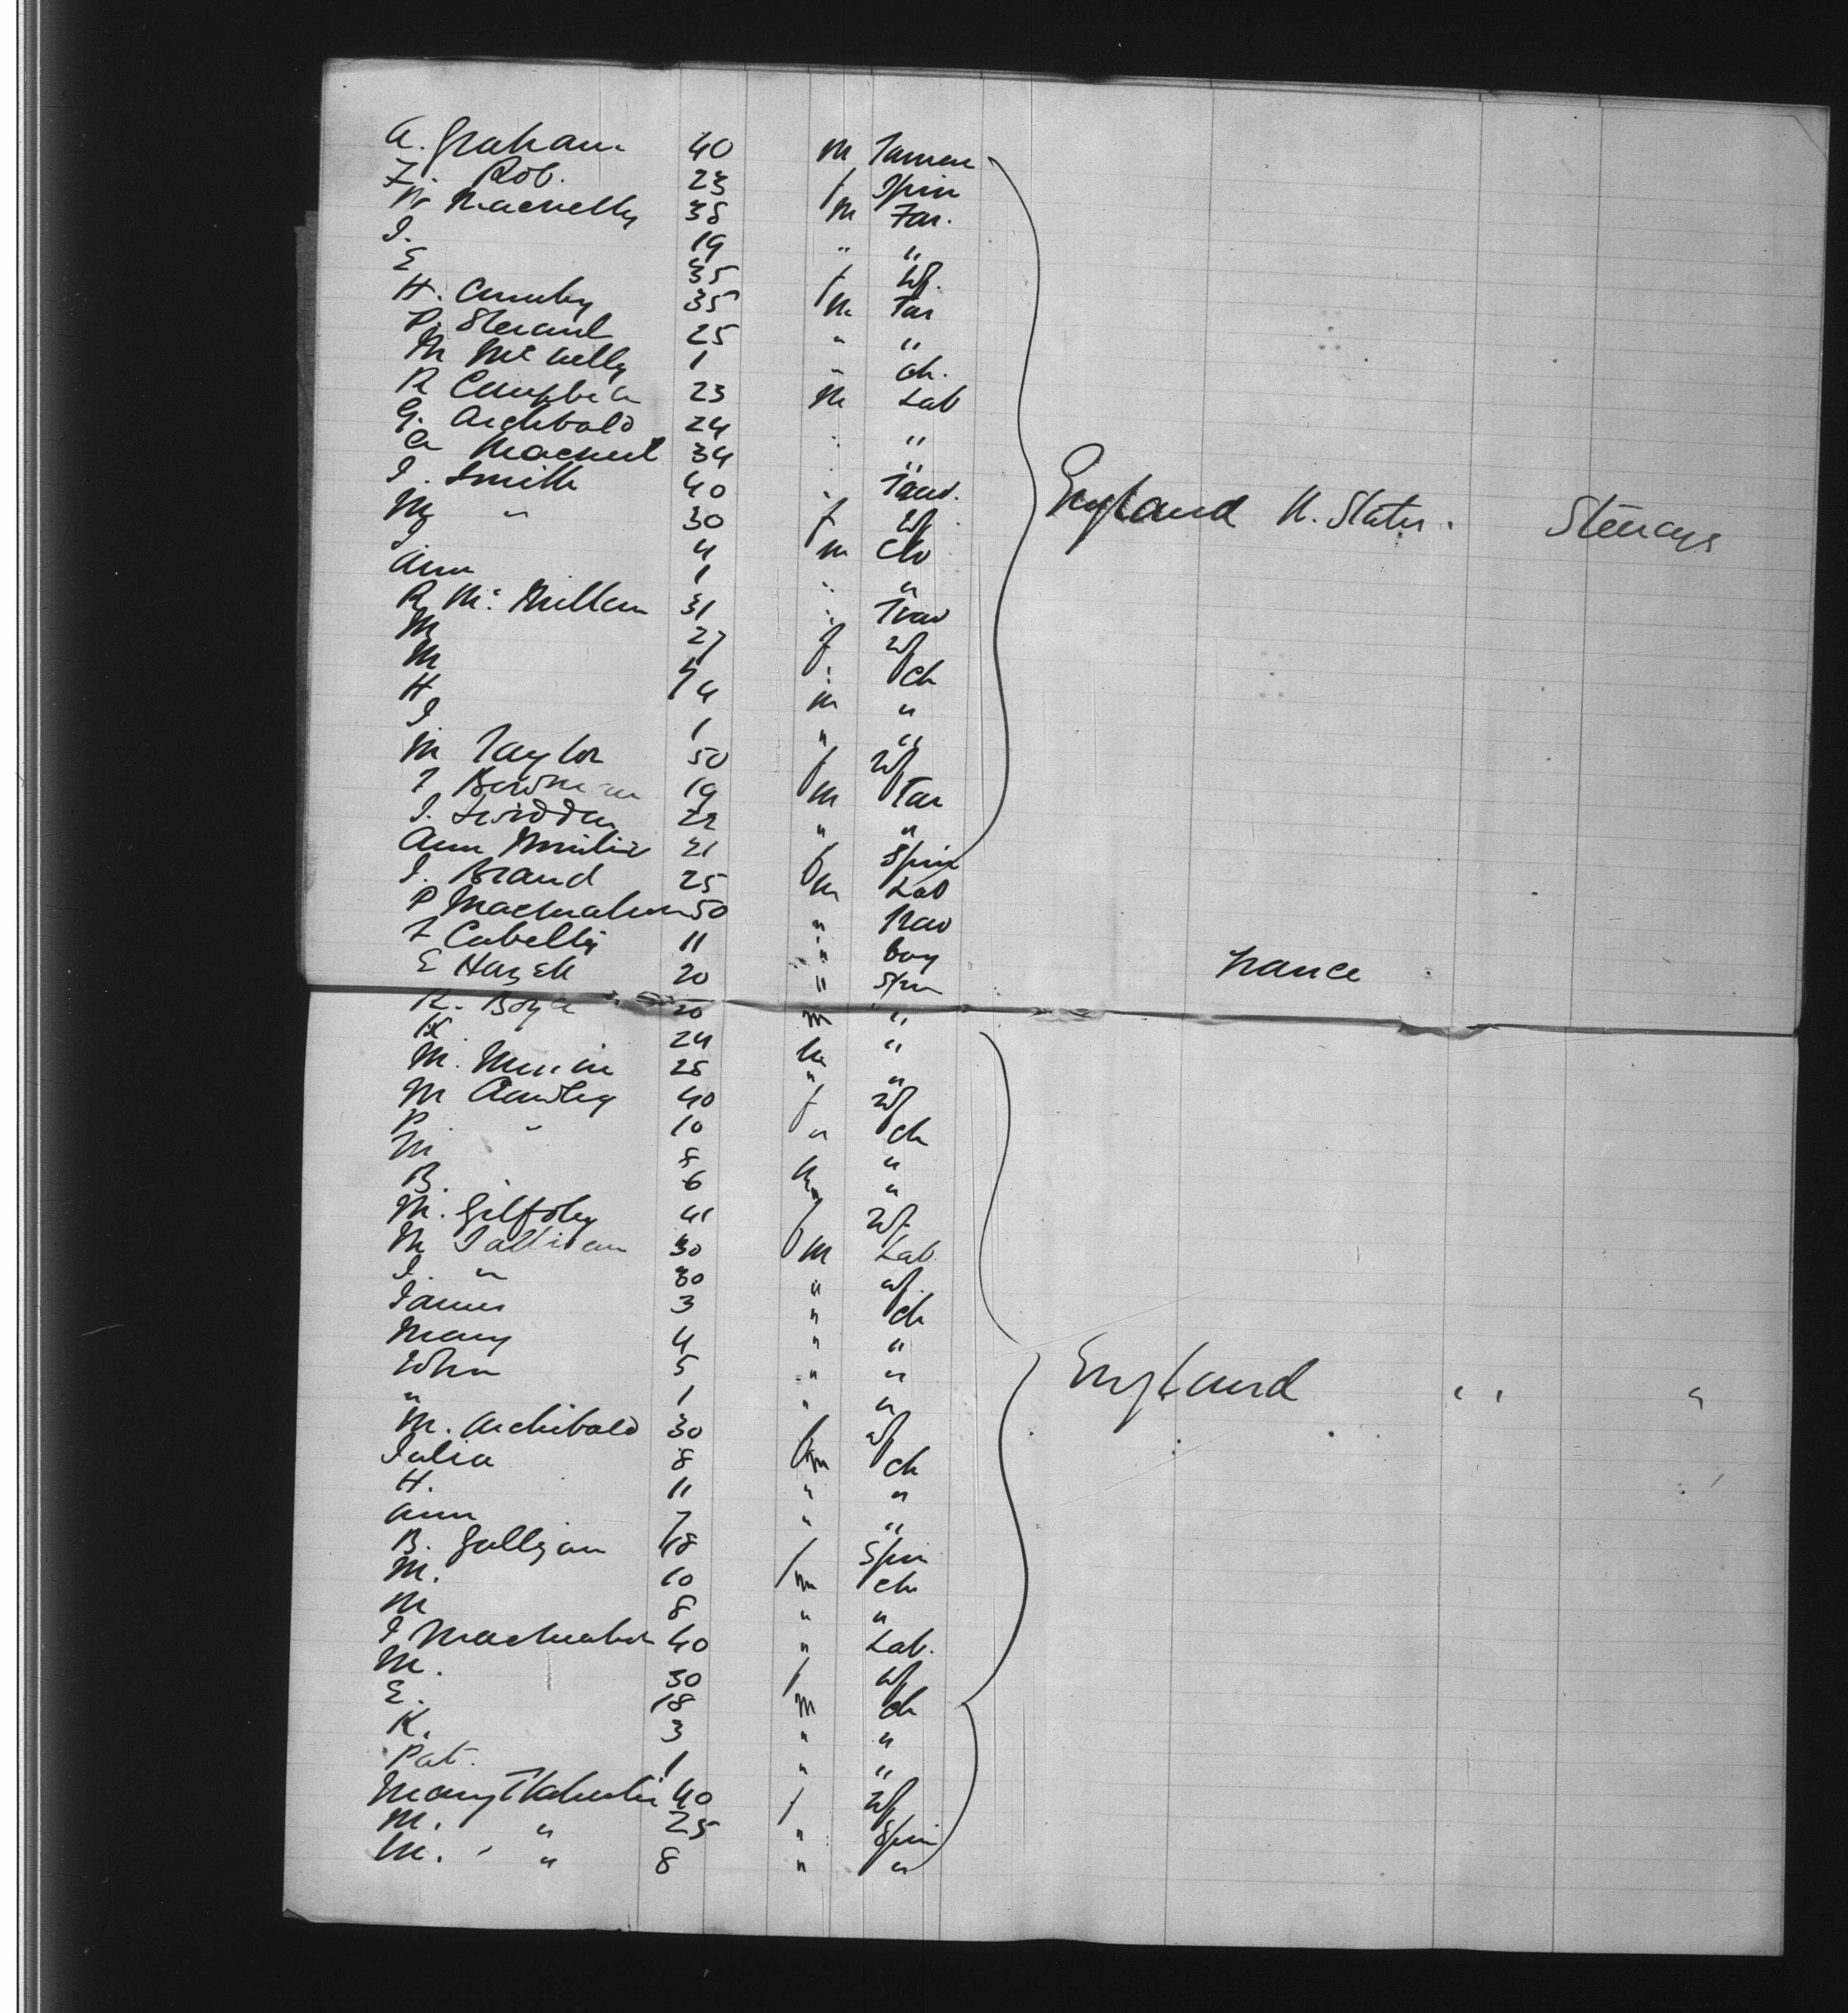 A. Graham 40 m Farmer
F. Rob. 23 f Spin
W Macnelly 38 m Far.
J. 19 " "
E 35 f Wf.
H. 35 m Far
P. 25 " "
M McNelly 1 " Ch.
R Campbell 23 m Lab
G. Archibald 24 " "
A 34 " "
J. Smith 40 "
M " 30 f Wf. England U. States. Steerage
J 4 m Ch
Ann 1 " "
R Mc Millan 31 "
M 27 f Wf
M " Ch
H 4 m "
J 1 " "
M Taylor 50 f Wf
T Bowman 19 m Far
J. 22 " "
Ann 21 f Spin
J. Brand 25 m Lab
P Macmahon 50 "
F 11 " boy
E 20 " Spin France
R. Boyle 20 m "
24 m "
M. 25 " "
M 40 f Wf
P. " 10 " Ch
M 8 "
B. 6 m "
M. Gilfoly 41 f Wf
M 30 m Lab.
J. " 30 " Wf.
James 3 " Ch
Mary 4 " "
John 5 " " England " "
" 1 " "
M. Archibald 30 f Wf
Julia 8 m Ch
H. 11 " "
Ann 7 " "
B. Galligan 18 f Spin
M. 10 m Ch
M 8 " "
J Macmahon 40 " Lab.
M. 30 f Wf
E. 18 m Ch
K. 3 " "
Pat. 1 " "
Mary 40 f Wf
M. " 25 " Spin
M. " 8 " "